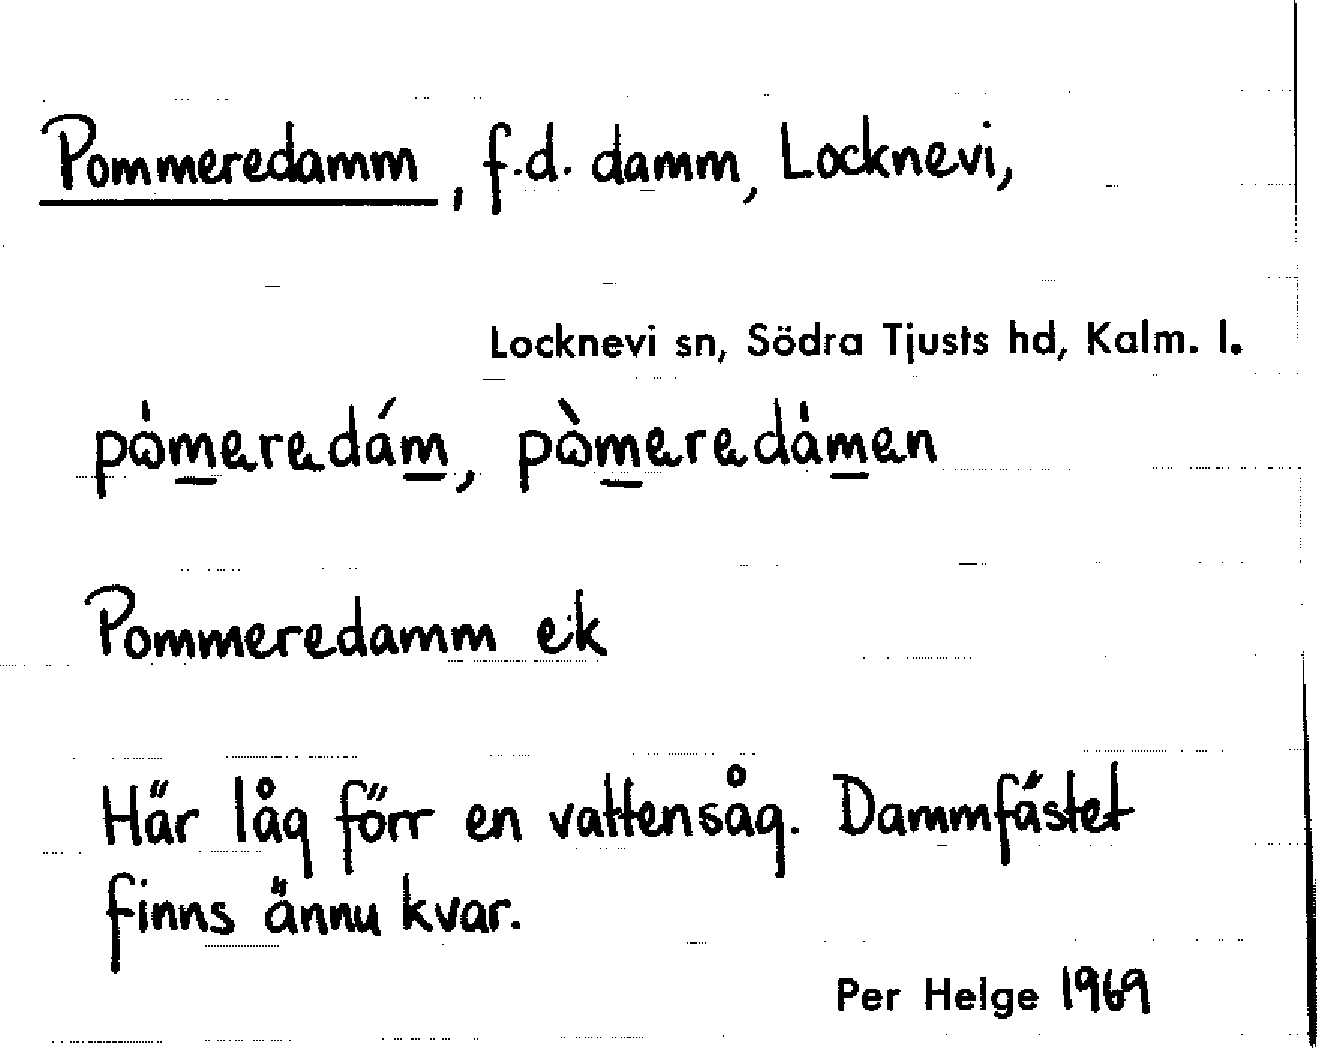 Pommeredamm, f.d. damm, Locknevi,
Locknevi sn, Södra Tjusts hd, Kalm. l.
Pommeredamm ek
Här låg förr en vattensåg. Dammfästet
finns ännu kvar.
Per Helge 1969